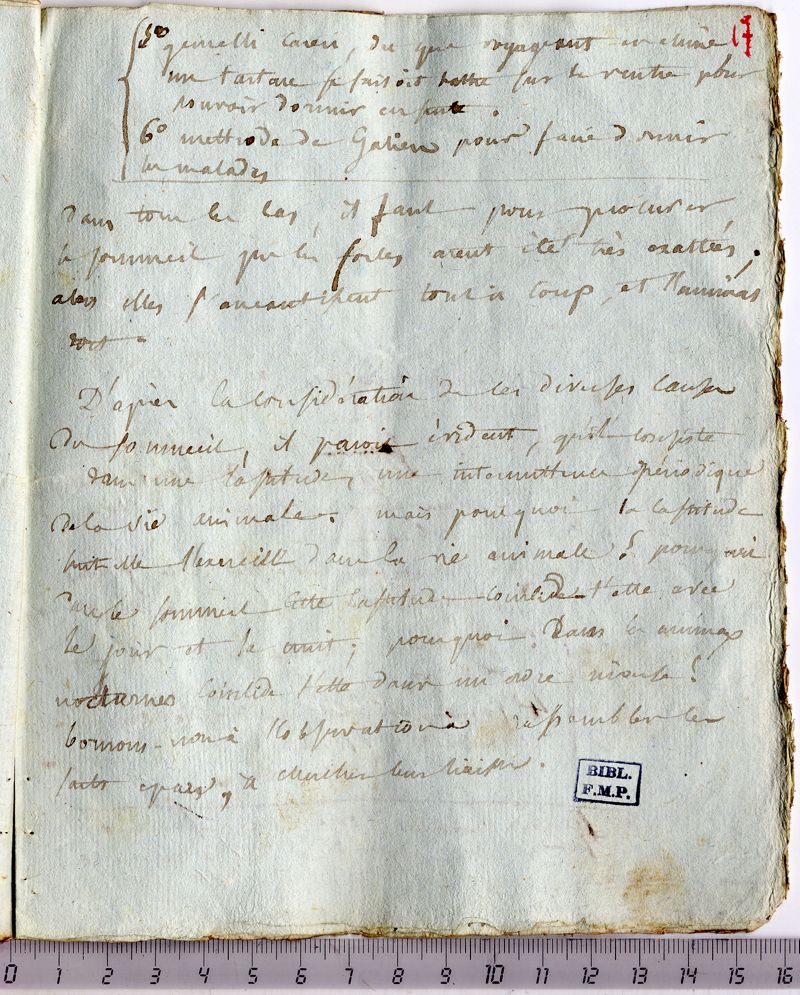 5° gemelli careri, dit que voyageant en chine 17
un tartare se faisoit battre sur le ventre pour
pouvoir dormir ensuite.
6° methode de Galien pour faire dormir
les malades
Dans tous les cas, il faut pour procurer
le sommeil que les forces aient été très exaltées,
alors elles s'aneantissent tout à coup, et l'animas
D'après la considération de ces diverses causes
du sommeil, il paroit évident, qu'il consiste
dans une lassitude, une intermittence périodique
de la vie animale. mais pourquoi la lassitude
suit elle l'exercice dans la vie animale? pourquoi
dans le sommeil cette lassitude coincide t'elle avec
le jour et la nuit; pourquoi Dans les animaux
nocturnes coincide t'elle dans un ordre inverse?
bornons-nous à l'observation à rassembler les
faits epars, à chercher leur liaison.
BIBL.
F.M.P.
0 1 2 3 4 5 6 7 8 9 10 11 12 13 14 15 16